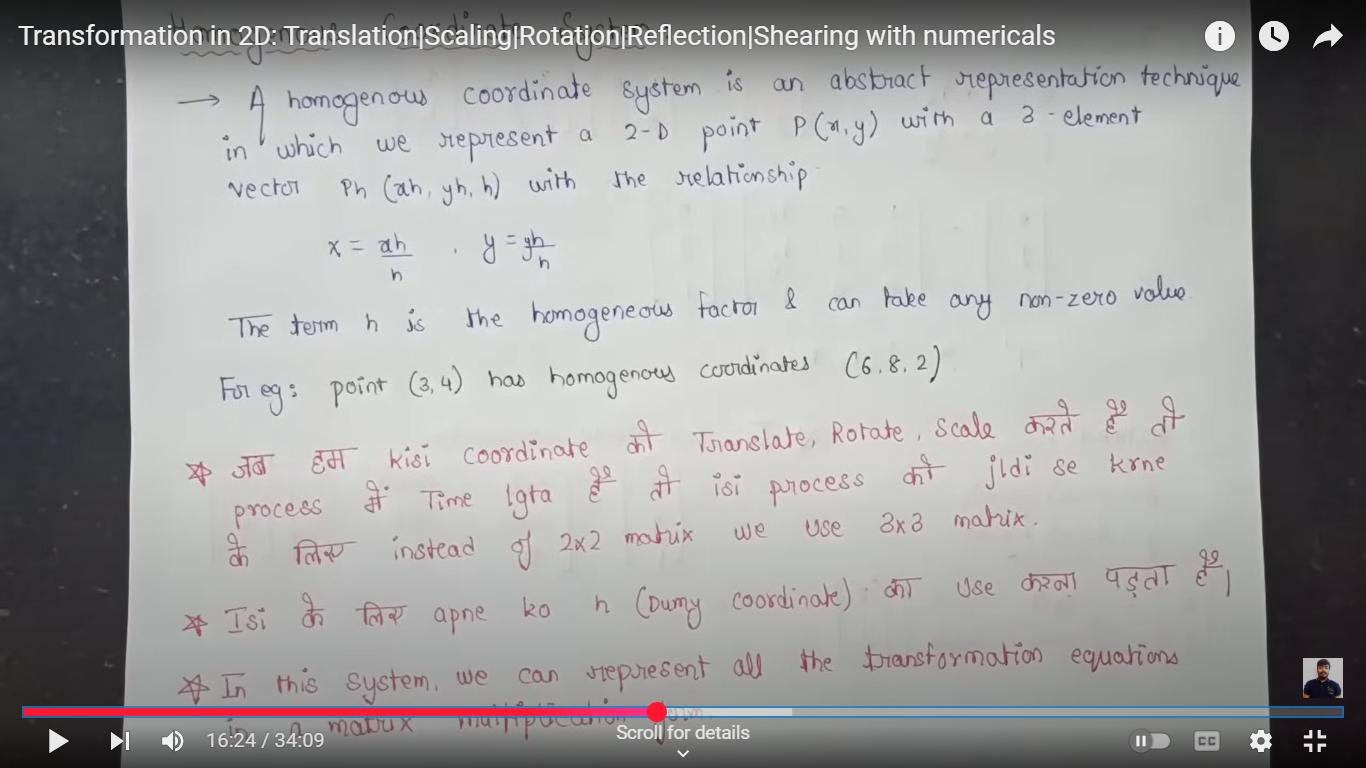 Transformation in 2D: Translation|Scaling|Rotation|Reflection|Shearing with numericals
→ A homogenous coordinate system is an abstract representation technique
in which we represent a 2-D point P(x,y) with a 3-element
vector Ph (xh, yh, h) with the relationship
x = xh/h , y = yh/h
The term h is the homogeneous factor & can take any non-zero value.
For eg: point (3,4) has homogenous coordinates (6,8,2)
☆ जब हम kisi coordinate को Translate, Rotate, Scale करते हैं तो
process में Time lgta है तो isi process को jldi se krne
के लिए instead of 2x2 matrix we use 3x3 matrix.
☆ Isi के लिए apne ko h (Dumy coordinate) का use करना पड़ता है।
☆ In this system, we can represent all the transformation equations
in a matrix multiplication form.
Scroll for details
16:24 / 34:09
CC